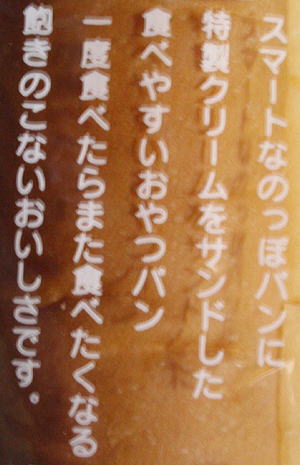 スマートなのっぽパンに
特製クリームをサンドした
食べやすいおやつパン
一度食べたらまた食べたくなる
飽きのこないおいしさです。